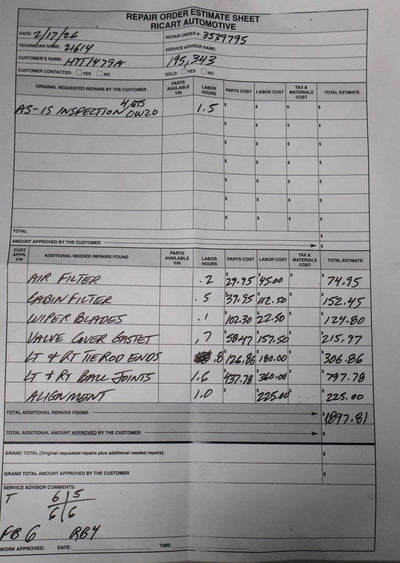 REPAIR ORDER ESTIMATE SHEET
RICART AUTOMOTIVE
DATE: 2/17/26 REPAIR ORDER #: 3539795
TECHNICIAN NAME: 21614 SERVICE ADVISOR NAME:
CUSTOMER'S NAME: HTT1479A 195,343
CUSTOMER CONTACTED: YES NO SOLD: YES NO
ORIGINAL REQUESTED REPAIRS BY THE CUSTOMER PARTS AVAILABLE Y/N LABOR HOURS PARTS COST LABOR COST TAX & MATERIALS COST TOTAL ESTIMATE
AS-IS INSPECTION 4 QTS 0W20 1.5 $ $ $ $
TOTAL
AMOUNT APPROVED BY THE CUSTOMER $
CUST. APPR. Y/N ADDITIONAL NEEDED REPAIRS FOUND PARTS AVAILABLE Y/N LABOR HOURS PARTS COST LABOR COST TAX & MATERIALS COST TOTAL ESTIMATE
AIR FILTER .2 $29.95 $45.00 $ $74.95
CABIN FILTER .5 $39.95 $112.50 $ $152.45
WIPER BLADES .1 $102.30 $22.50 $ $124.80
VALVE COVER GASTET .7 $58.47 $157.50 $ $215.97
LT & RT TIEROD ENDS .8 $126.86 $180.00 $ $306.86
LT & RT BALL JOINTS 1.6 $437.78 $360.00 $ $797.78
ALIGNMENT 1.0 $ $225.00 $ $225.00
TOTAL ADDITIONAL REPAIRS FOUND $1897.81
TOTAL ADDITIONAL AMOUNT APPROVED BY THE CUSTOMER $
GRAND TOTAL (Original requested repairs plus additional needed repairs) $
GRAND TOTAL AMOUNT APPROVED BY THE CUSTOMER $
SERVICE ADVISOR COMMENTS:
T 6 5
6 6
FB 6 RB4
WORK APPROVED: DATE: TIME: